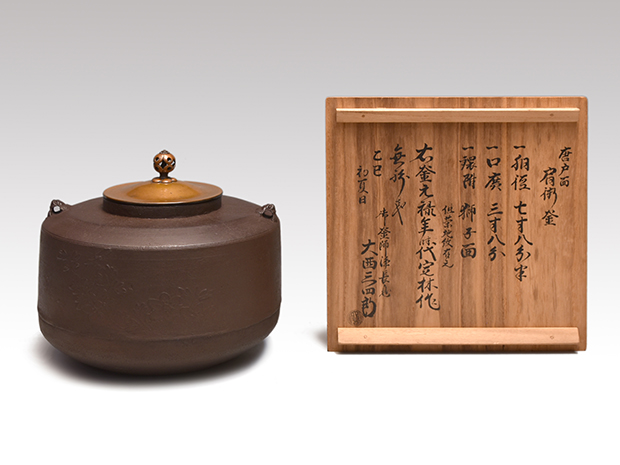 唐戸面
肩衝釜
一胴径 七寸八分半
一口廣 三寸八分
一環附 獅子面
地紋有之
右釜元禄年時代定林作
無
乙巳
初夏日
釜師浄長
大西三四郎